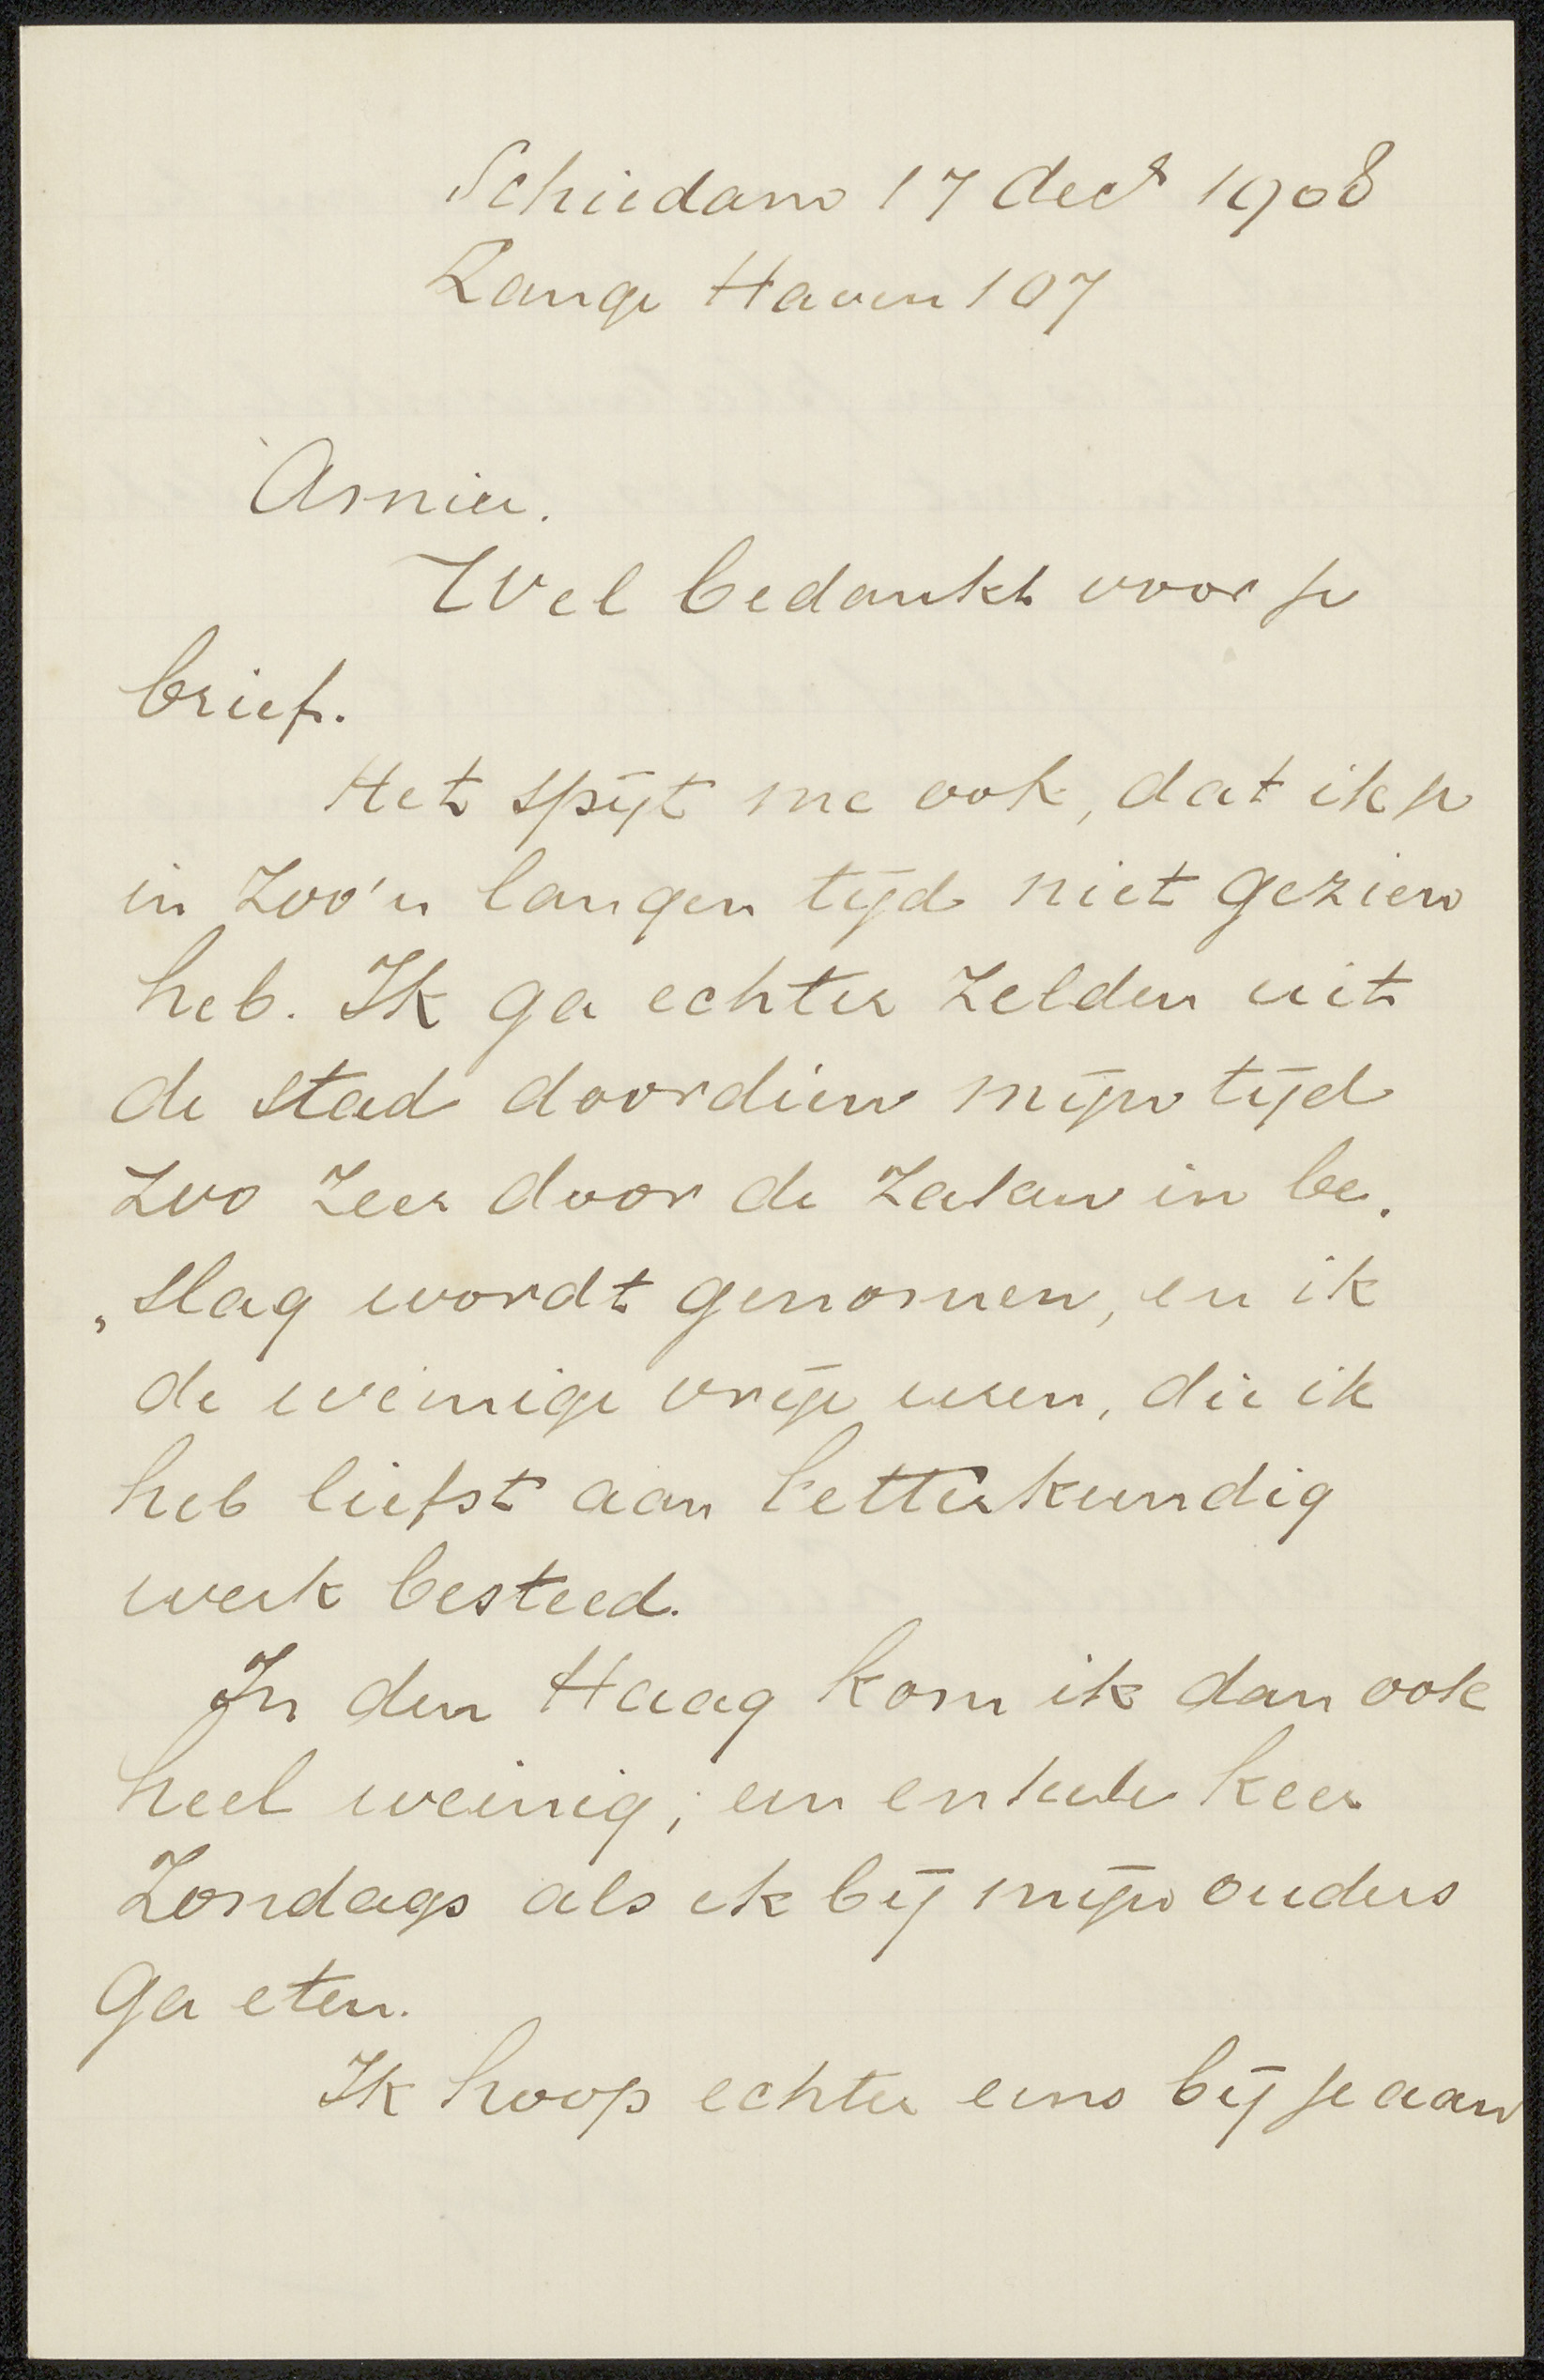 Schiedam 17 decr 1908
Lange Haven 107
Amice.
Wel bedankt voor je
brief.
Het spijt me ook, dat ik je
in zoo'n langen tijd niet gezien
heb. Ik ga echter zelden uit
de stad doordien mijn tijd
zoo zeer door de zaken in be„
„slag wordt genomen, en ik
de weinige vrije uren, die ik
heb liefst aan letterkundig
werk besteed.
In den Haag kom ik dan ook
heel weinig; een enkele keer
Zondags als ik bij mijn ouders
ga eten.
Ik hoop echter eens bij je aan